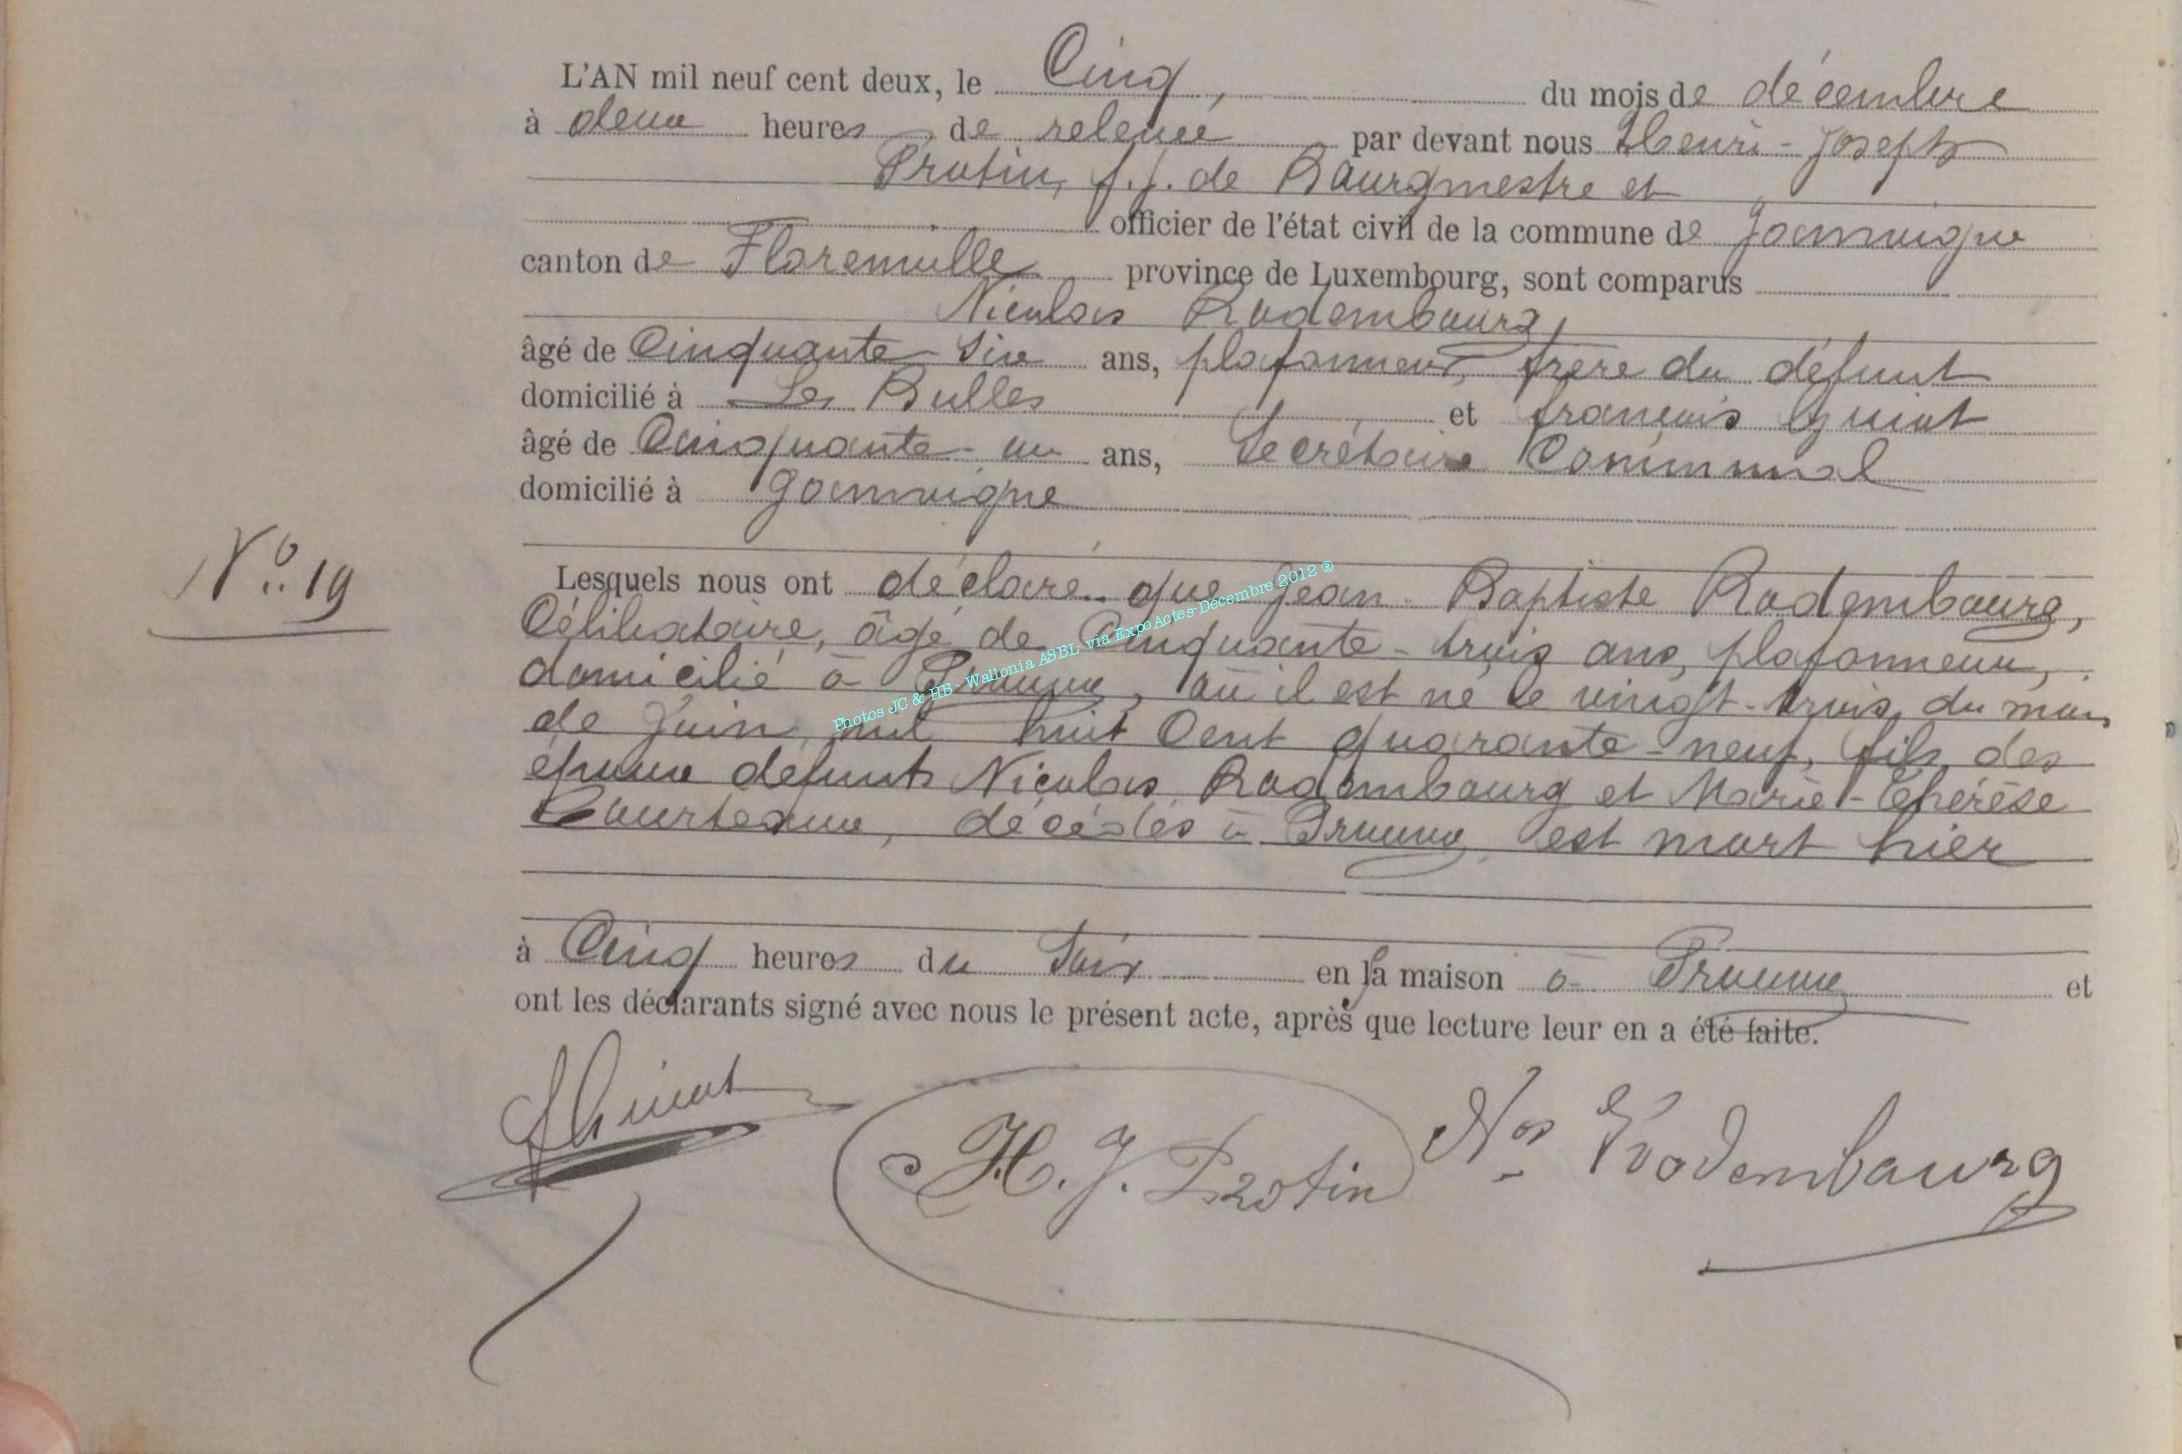 L'AN mil neuf cent deux, le Cinq, du mois de décembre
à deux heures de relevée par devant nous Henri-Joseph
Protin, f.f. de Bourgmestre et
officier de l'état civil de la commune de Jamoigne
canton de Florenville province de Luxembourg, sont comparus
Nicolas Rodembourg,
âgé de Cinquante-six ans, plafonneur, frère du défunt
domicilié à Les Bulles et françois Guiot
âgé de Cinquante-un ans, Secrétaire Communal
domicilié à Jamoigne
N° 19
Lesquels nous ont déclaré que Jean Baptiste Rodembourg,
Célibataire, âgé de Cinquante-trois ans, plafonneur,
domicilié à Prouvy, où il est né le vingt-trois du mois
de Juin mil huit Cent quarante-neuf, fils des
époux défunts Nicolas Rodembourg et Marie-Thérèse
décédés à Prouvy est mort hier
à Cinq heures du Soir en sa maison à Prouvy et
ont les déclarants signé avec nous le présent acte, après que lecture leur en a été faite.
H. J. Protin
Nas Rodembourg
Photos JC & HB - Wallonia ASBL via ExpoActes-Décembre 2012 ®